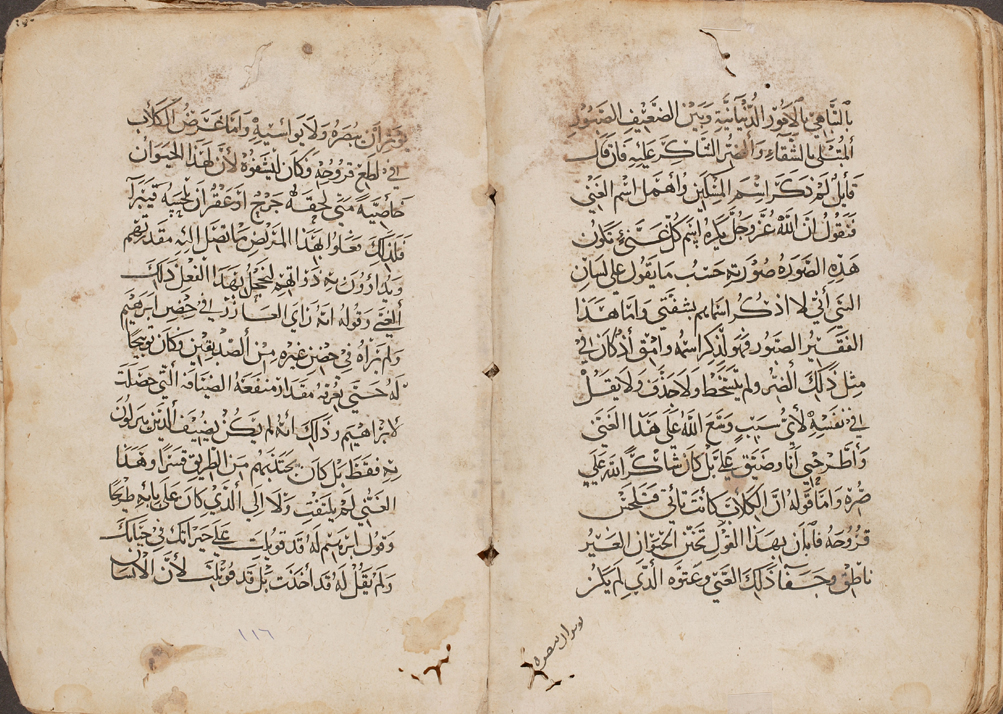 بالتناهي بالامور الدنيانية وبين الضعيف الصبور
المبتلي بالشقاء والضر الشاكر عليه فان قال
قايل لم ذكر اسم المسكين واهمل اسم الغني
فنقول ان الله عز وجل يكره اسم كل غني تكون
هذه الصورة صورته حسب ما يقول على لسان
النبي أني لا اذكر اسماهم بشفتي واما هذا
الفقير الصبور فهو لذكر اسمه وامق اذ كان في
مثل ذلك الضر ولم يتسخط ولا جدف ولا يقل
في نفسه لأي سبب وسع الله على هذا الغني
وأطرحني أنا وضيق علي بل كان شاكرا لله علي
ضره واما قوله ان الكلاب كانت تأتي فتلحس
قروحه فابان بهذا القول تحنن الحيوان الغير
ناطق وجفا ذلك الغني وعتوه الذي لم يكن
يوثر ان يبصره
يوثر ان يبصره ولا يواسيه واما غرض الكلاب
في لطع قروحه وكان ليشفوه لأن لهذا الحيوان
خاصية متي لحقه جرح اذ عقر ان يلحسه فيبرا
فلذلك فعلوا بهذا المريض ما تصل اليه مقدرتهم
ويداوون به ذواتهم ليخجل بهذا الفعل ذلك
الغني وقوله انه راي العازر في حضن ابرهيم
ولم يراه في حضن غيره من الصديقين وكان توبيخا
له حتى يعرفه مقدار منفعة الضيافة التي حصلت
لابراهيم وذلك انه لم يكن يضيف الذين ينزلون
به فقط بل كان يجتذبهم من الطريق قسرا وهذا
الغني لم يلتفت ولا الي الذي كان على بابه طريحا
وقول ابرهيم له قد قوبلت على خيراتك في حياتك
ولم يقل له قد اخذت بل قد قوبلت لأن الانسان
١١٦